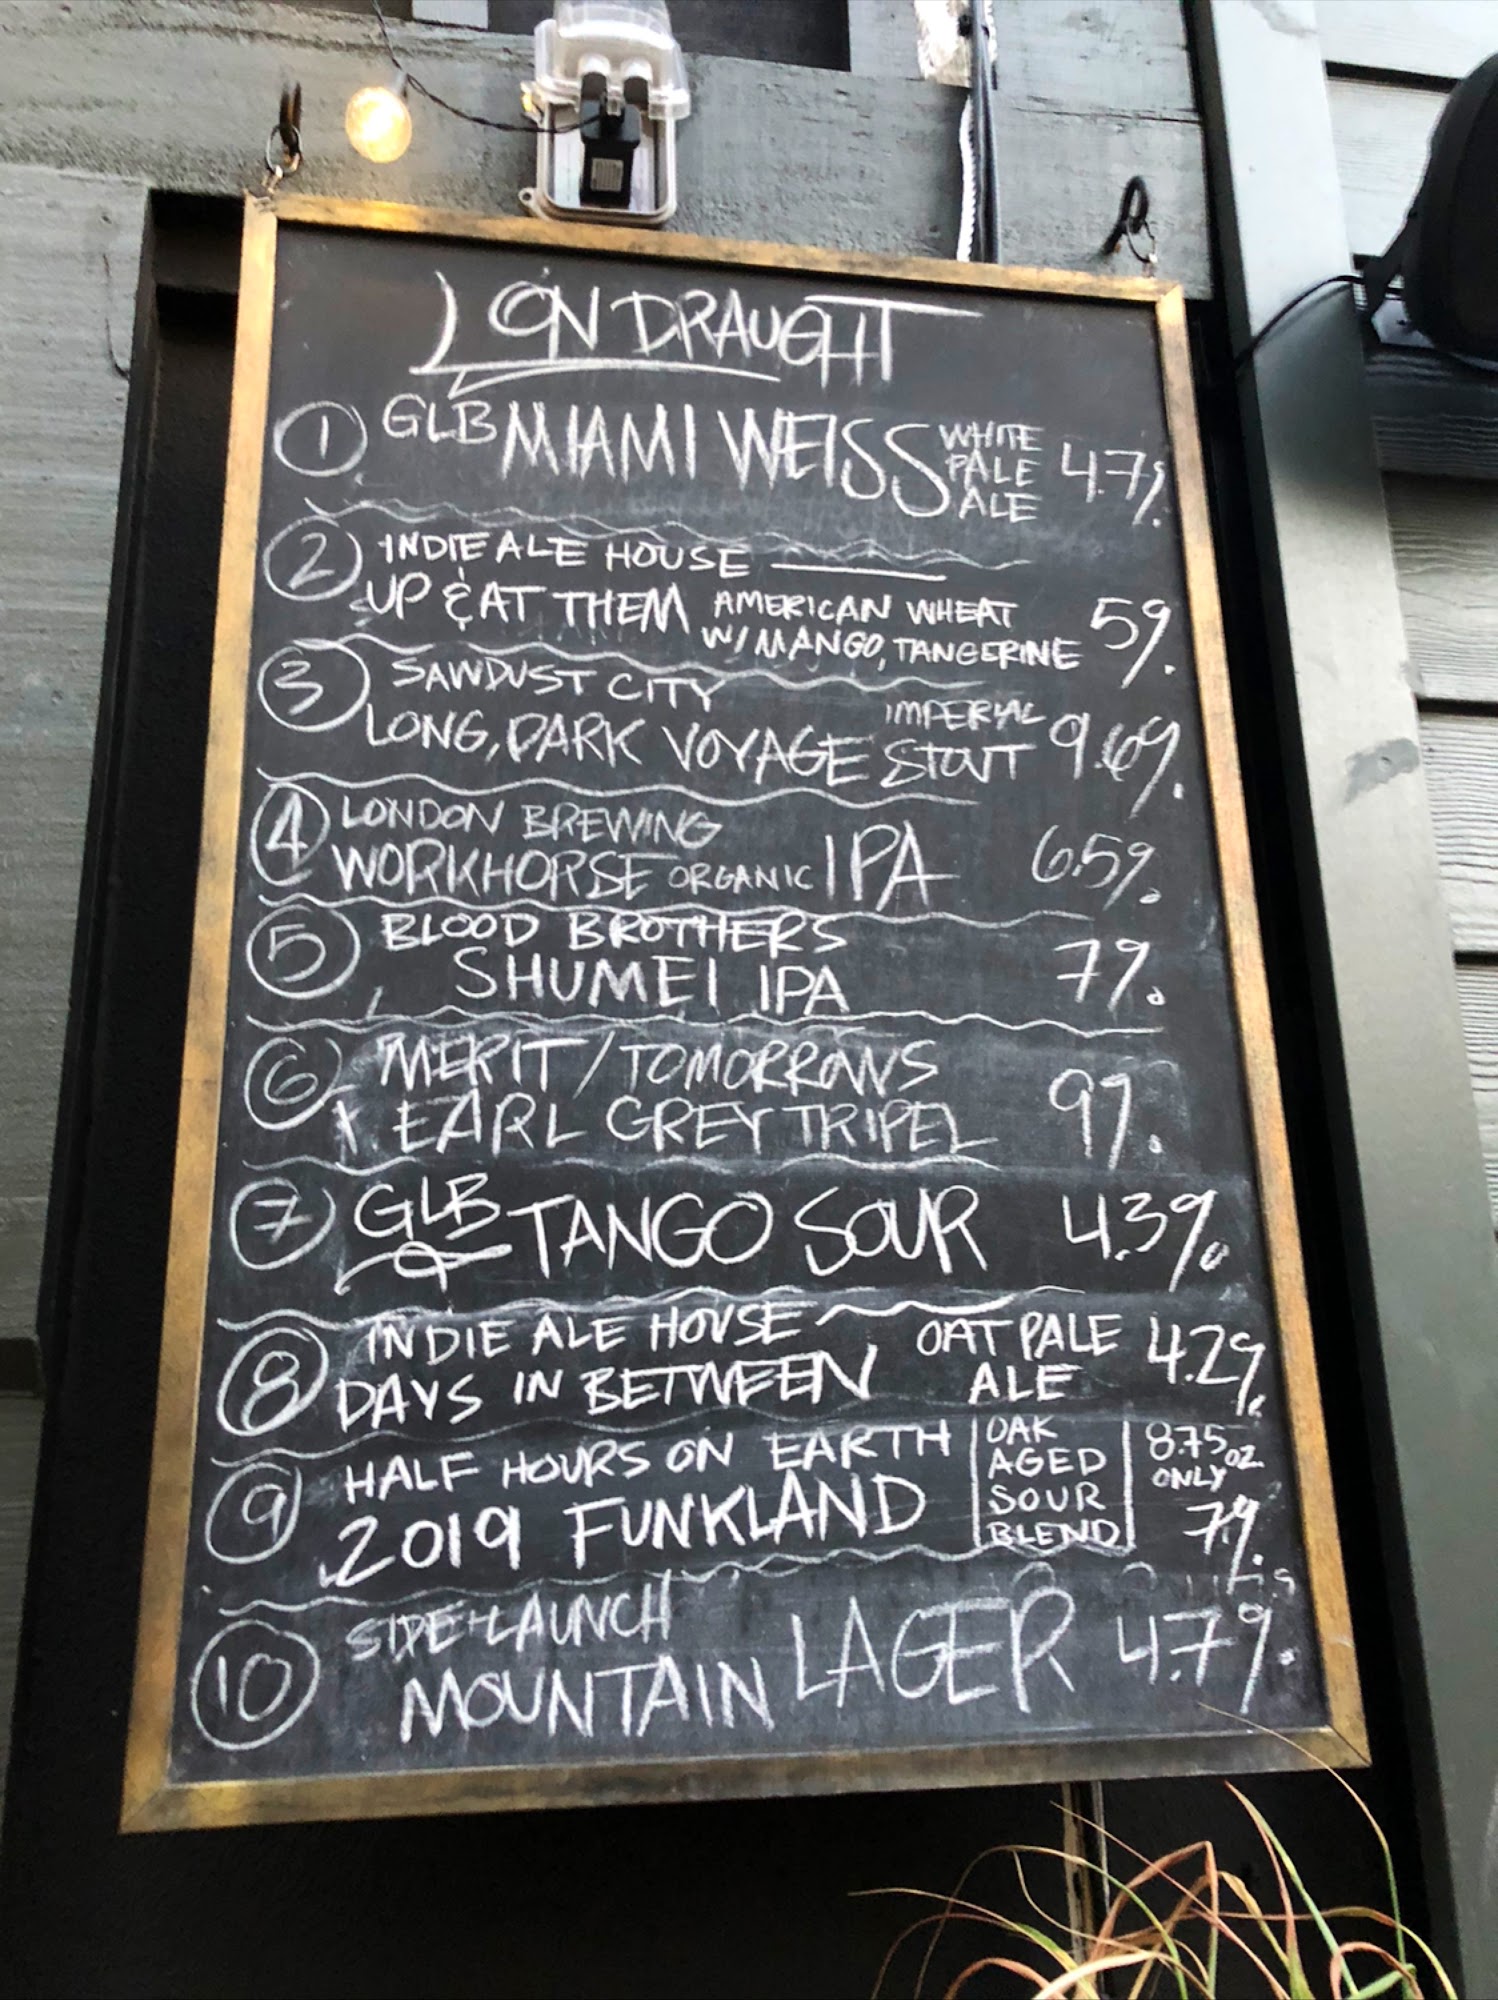 ON DRAUGHT
1 GLB MIAMI WEISS WHITE PALE ALE 4.7%
2 INDIE ALE HOUSE
UP & AT THEM AMERICAN WHEAT W/ MANGO, TANGERINE 5%
3 SAWDUST CITY
LONG, DARK VOYAGE IMPERIAL STOUT 9.6%
4 LONDON BREWING
WORKHORSE ORGANIC IPA 6.5%
5 BLOOD BROTHERS
SHUMEI IPA 7%
6 MERIT / TOMORROWS
EARL GREY TRIPEL 9%
7 GLB TANGO SOUR 4.3%
8 INDIE ALE HOUSE
DAYS IN BETWEEN OAT PALE ALE 4.2%
9 HALF HOURS ON EARTH
2019 FUNKLAND OAK AGED SOUR BLEND 8.75 OZ. ONLY 7%
10 SIDE-LAUNCH
MOUNTAIN LAGER 4.7%